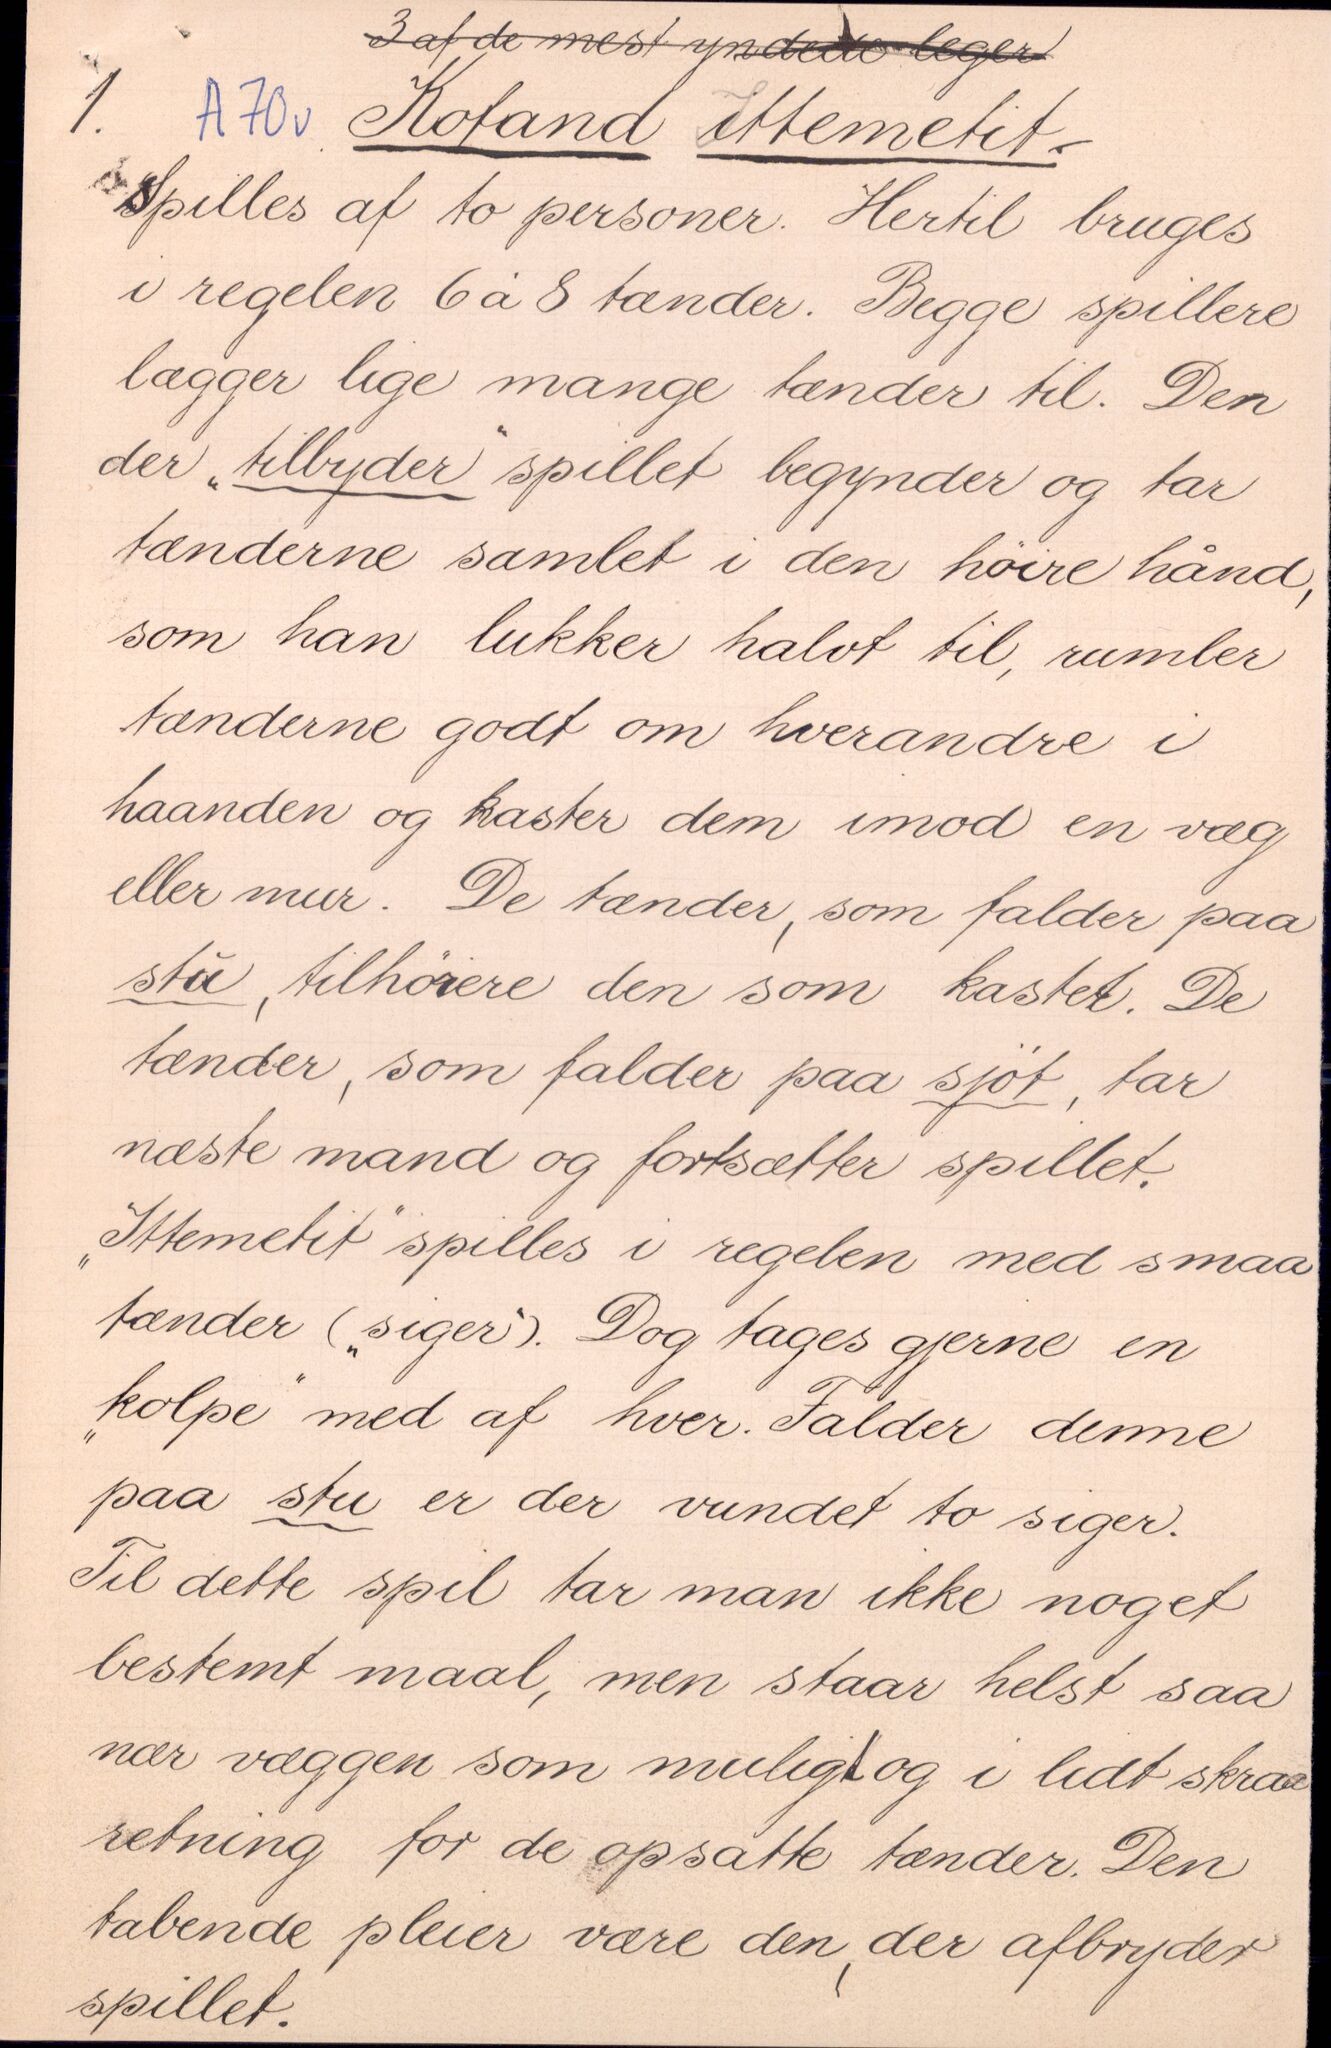 3 af de mest yndede leger
1. A 70v Kofand ittemetit.
Spilles af to personer. Hertil bruges
i regelen 6 à 8 tænder. Begge spillere
lægger lige mange tænder til. Den
der „tilbyder“ spillet begynder og tar
tænderne samlet i den höire hånd,
som han lukker halvt til, rumler
tænderne godt om hverandre i
haanden og kaster dem imod en væg
eller mur. De tænder, som falder paa
stŭ, tilhöiere den som kastet. De
tænder, som falder paa sjöt, tar
næste mand og fortsætter spillet.
„Ittemetit“ spilles i regelen med smaa
tænder („siger“). Dog tages gjerne en
„kolpe“ med af hver. Falder denne
paa stu er der vundet to siger.
Til dette spil tar man ikke noget
bestemt maal, men staar helst saa
nær væggen som muligt og i lidt skraa
retning for de opsatte tænder. Den
tabende pleier være den, der afbryder
spillet.